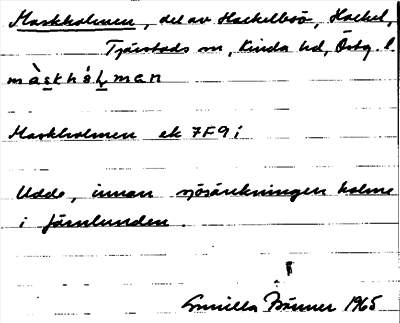 Maskholmen, del av Hackelboö, Hackel,
Tjärstads sn, Kinda hd, Östg. l.
màskhólman
Maskholmen ek 7F9i
Udde, innan sjösänkningen holme
i Järnlunden.
Gunilla Brunner 1965